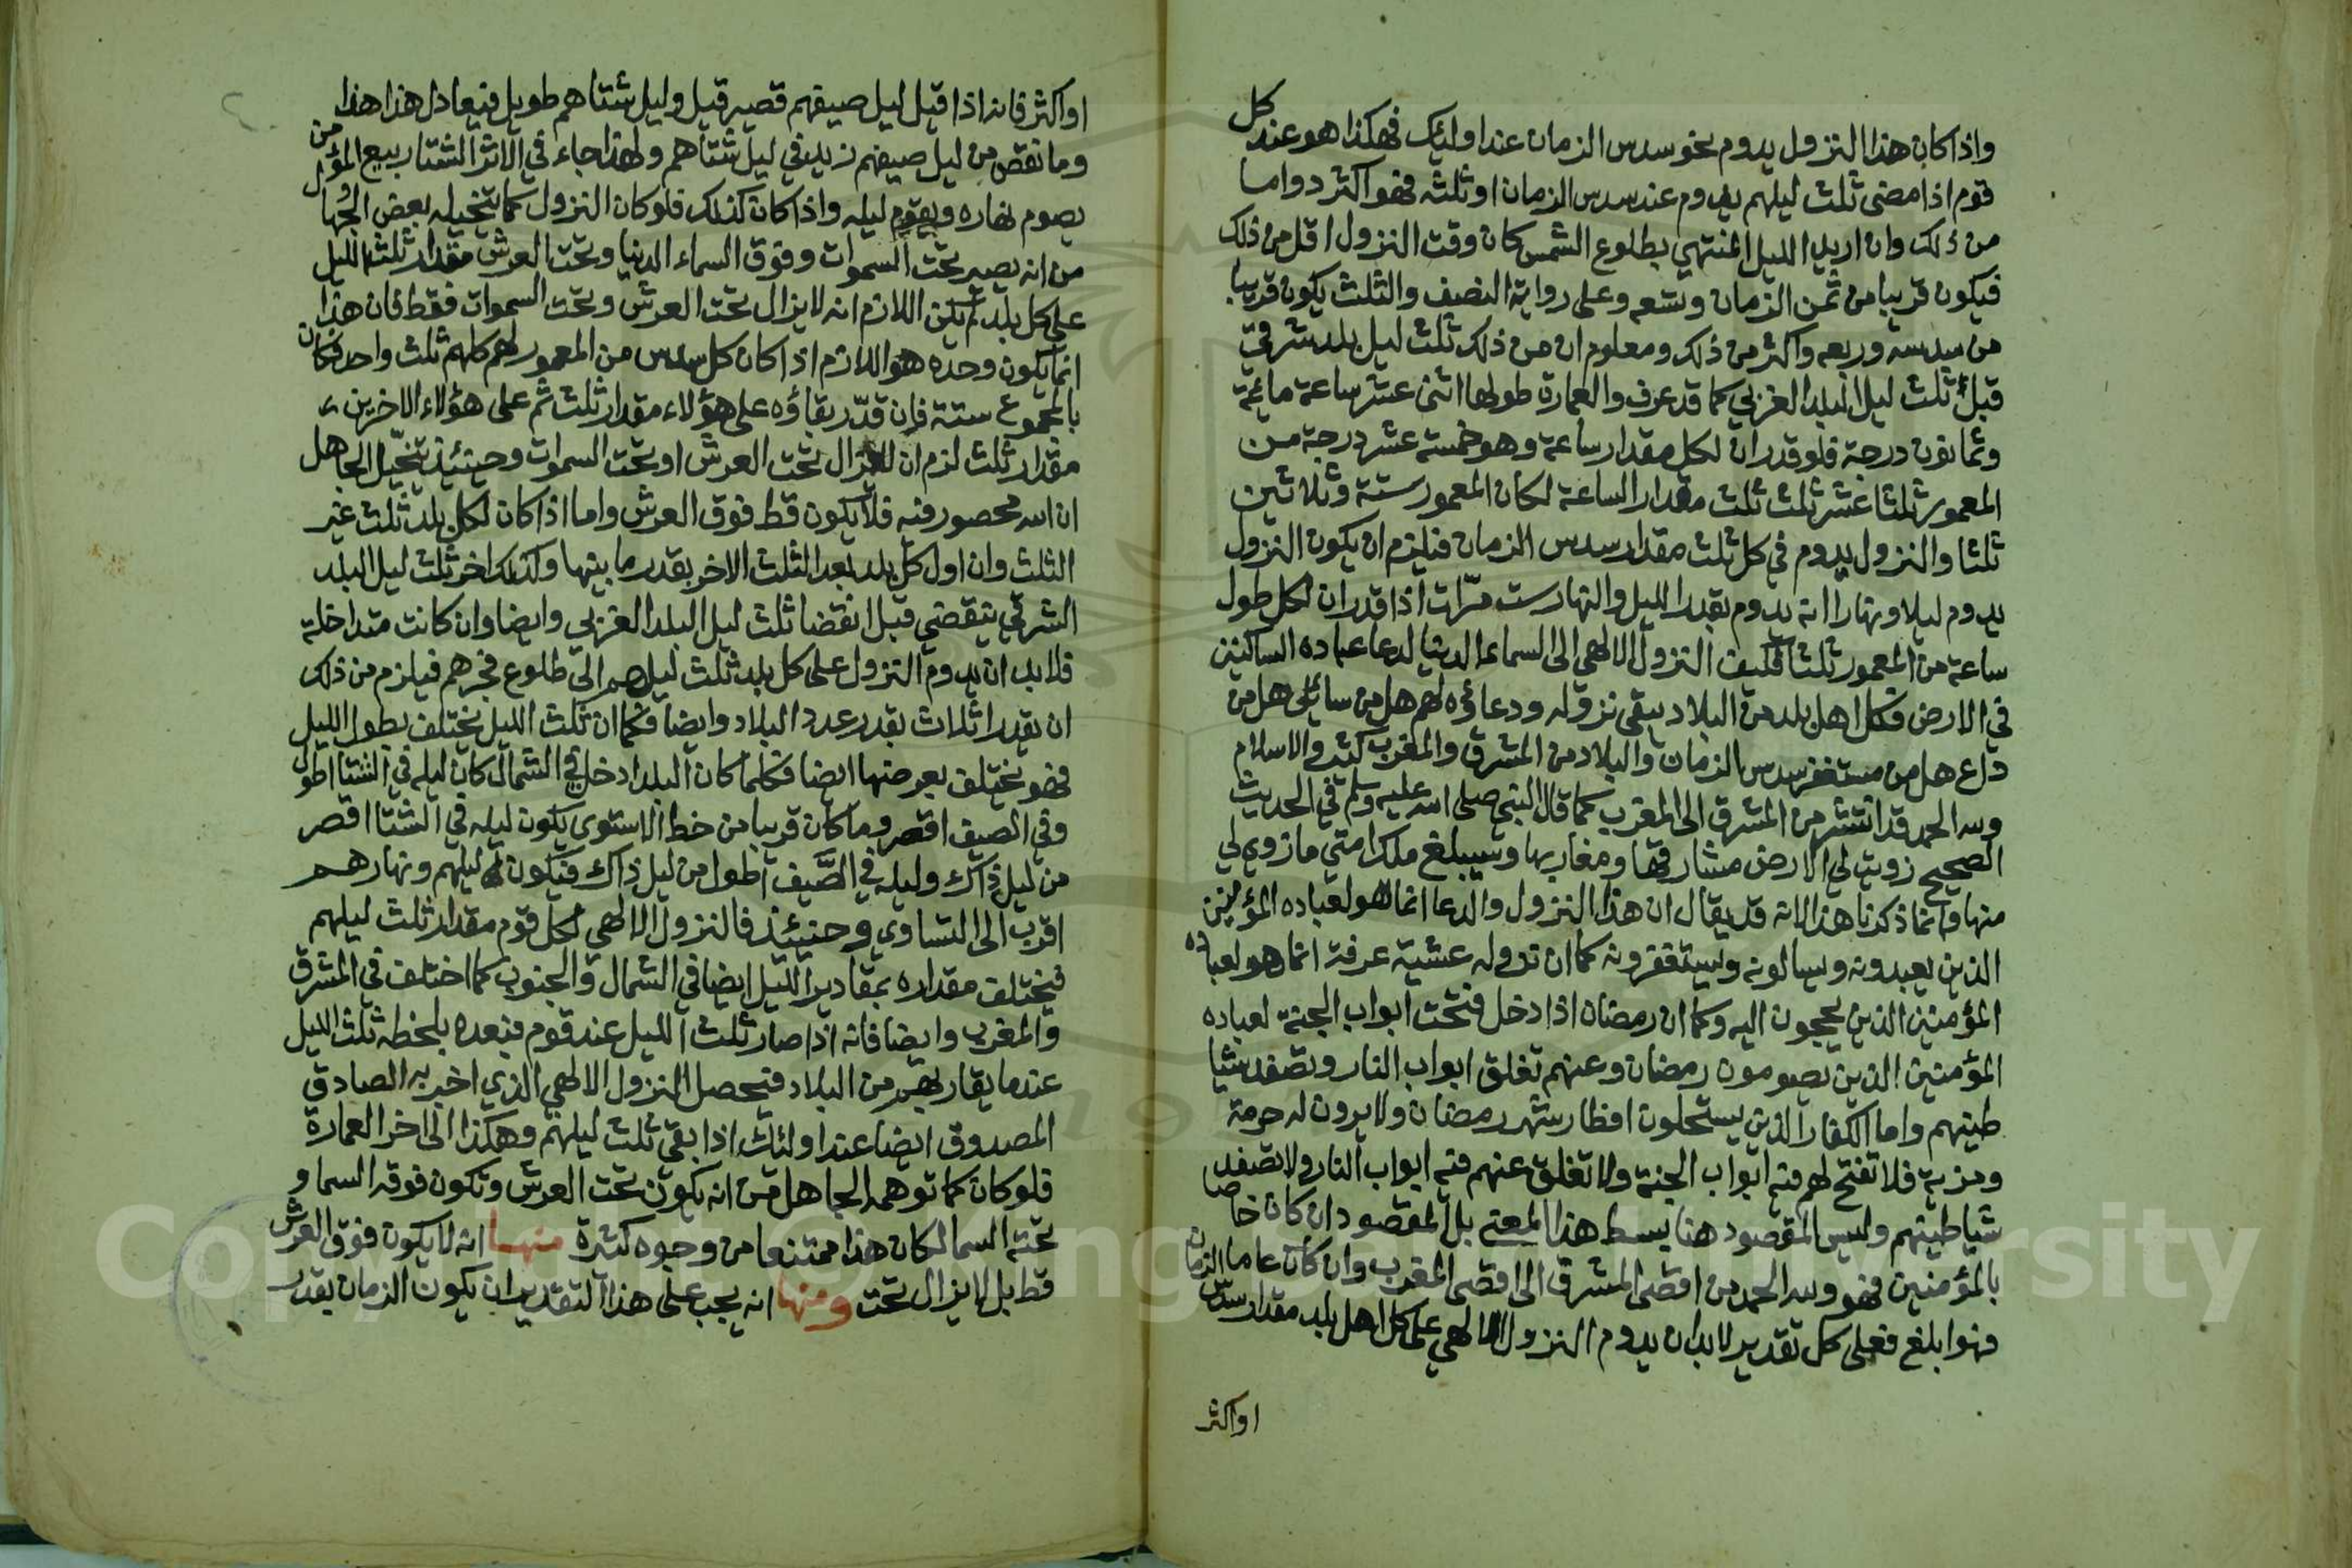 واذا كان هذا النزول يدوم نحو سدس الزمان عند اولئك فهكذا هو عند كل
قوم اذا مضى ثلث ليلهم يدوم عند سدس الزمان او ثلثه فهو اكثر دواما
من ذلك وان اريد الليل المنتهي بطلوع الشمس كان وقت النزول اقل من ذلك
فيكون قريبا من ثمن الزمان وتسعه وعلى رواية النصف والثلث يكون قريبا
من سدسه وربعه واكثر من ذلك ومعلوم ان من ذلك ثلث ليل بلد شرقي
قبل ثلث ليل البلد الغربي كما قد عرف والعمارة طولها اثنى عشر ساعة مائة
وثمانون درجة فلو قدر ان لكل مقدار ساعة وهو خمسة عشر درجة من
المعمور ثلثا عشر ثلث ثلث مقدار الساعة لكان المعمور ستة وثلاثين
ثلثا والنزول يدوم في كل ثلث مقدار سدس الزمان فيلزم ان يكون النزول
يدوم ليلا ونهارا انه يدوم بقدر الليل والنهار ست مرّات اذا قدر ان لكل طول
ساعة من المعمور ثلثا فكيف النزول الالهي الى السماء الدنيا لدعا عباده الساكنين
في الارض فكل اهل بلد من البلاد يبقى نزوله ودعاؤه لهم هل من سائل هل من
داع هل من مستغفر سدس الزمان والبلاد من المشرق والمغرب كثير والاسلام
ولله الحمد قد انتشر من المشرق الى المغرب كما قال النبي صلى الله عليه وسلم في الحديث
الصحيح زويت لي الارض مشارقها ومغاربها وسيبلغ ملك امتي ما زوي لي
منها وانما ذكرنا هذا لانه قد يقال ان هذا النزول والدعا انما هو لعباده المؤمنين
الذين يعبدونه ويسالونه ويستغفرونه كما ان نزوله عشية عرفة انما هو لعباده
المؤمنين الذين يحجون اليه وكما ان رمضان اذا دخل فتحت ابواب الجنة لعباده
المؤمنين الذين يصومون رمضان وعنهم تغلق ابواب النار وتصفد شيا
طينهم واما الكفار الذين يستحلون افطار شهر رمضان ولا يرون له حرمة
ومزية فلا تفتح لهم فيه ابواب الجنة ولا تغلق عنهم فيه ابواب النار ولا تصفد
شياطينهم وليس المقصود هنا بسط هذا المعنى بل المقصود ان كان خاصا
بالمؤمنين فهو ولله الحمد من اقصى المشرق الى اقصى المغرب وان كان عاما الزمان
فهو ابلغ فعلى كل تقدير لا بد ان يدوم النزول الالهي على كل اهل بلد مقدار سدس
او اكثر
او اكثر فانه اذا قيل ليل صيفهم قصير قيل وليل شتاهم طويل فيعادل هذا هذا
وما نقص من ليل صيفهم زيد في ليل شتاهم ولهذا جاء في الاثر الشتا ربيع المؤمن
يصوم نهاره ويقوم ليله واذا كان كذلك فلو كان النزول كما يتخيله بعض الجُهال
من انه يصير تحت السموات وفوق السماء الدنيا وتحت العرش مقدار ثلث الليل
على كل بلد لم يكن اللازم انه لا يزال تحت العرش وتحت السموات فقط فان هذا
انما يكون وحده هو اللازم اذا كان كل سدس من المعمور لهم كلهم ثلث واحد فكان
بالمجموع ستة فإن قدّر بقاؤه على هؤلاء مقدار ثلث ثم على هؤلاء الاخرين
مقدار ثلث لزم ان لا يزال تحت العرش او تحت السموات وحينئذ يتخيّل الجاهل
ان الله محصور فيه فلا يكون قط فوق العرش واما اذا كان لكل بلد ثلث غير
الثلث وان اول كل بلد بعد الثلث الاخر بقدر ما بينها وكذلك اخر ثلث ليل البلد
الشرقي ينقضي قبل انقضا ثلث ليل البلد الغربي وايضا وان كانت متداخلة
فلا بد ان يدوم النزول على كل بلد ثلث ليلهم الى طلوع فجرهم فيلزم من ذلك
ان يقدر اثلاث بقدر عدد البلاد وايضا فكما ان ثلث الليل يختلف بطول الليل
فهو يختلف بعرضها ايضا فكلما كان البلد ادخل في الشمال كان ليله في الشتا اطول
وفي الصيف اقصر وما كان قريبا من خط الاستوى يكون ليله في الشتا اقصر
من ليل ذاك وليله في الصَّيف اطول من ليل ذاك فيكون ليلهم ونهارهم
اقرب الى التساوي وحينئذ فالنزول الالهي لكل قوم مقدار ثلث ليلهم
فيختلف مقداره بمقادير الليل ايضا في الشمال والجنوب كما اختلف في المشرق
والمغرب وايضا فانه اذا صار ثلث الليل عند قوم فبعده بلحظة ثلث الليل
عند ما يقاربهم من البلاد فيحصل النزول الالهي الذي اخبر به الصادق
المصدوق ايضا عند اولئك اذا بقي ثلث ليلهم وهكذا الى اخر العمارة
فلو كان كما توهمه الجاهل من انه يكون تحت العرش وتكون فوقه السما و
تحته السما لكان هذا ممتنعا من وجوه كثيرة منهــا انه لا يكون فوق العرش
قط بل لا يزال تحت ومنها انه يجب على هذا التقدير ان يكون الزمان بقدر
Copyright © King Saud University